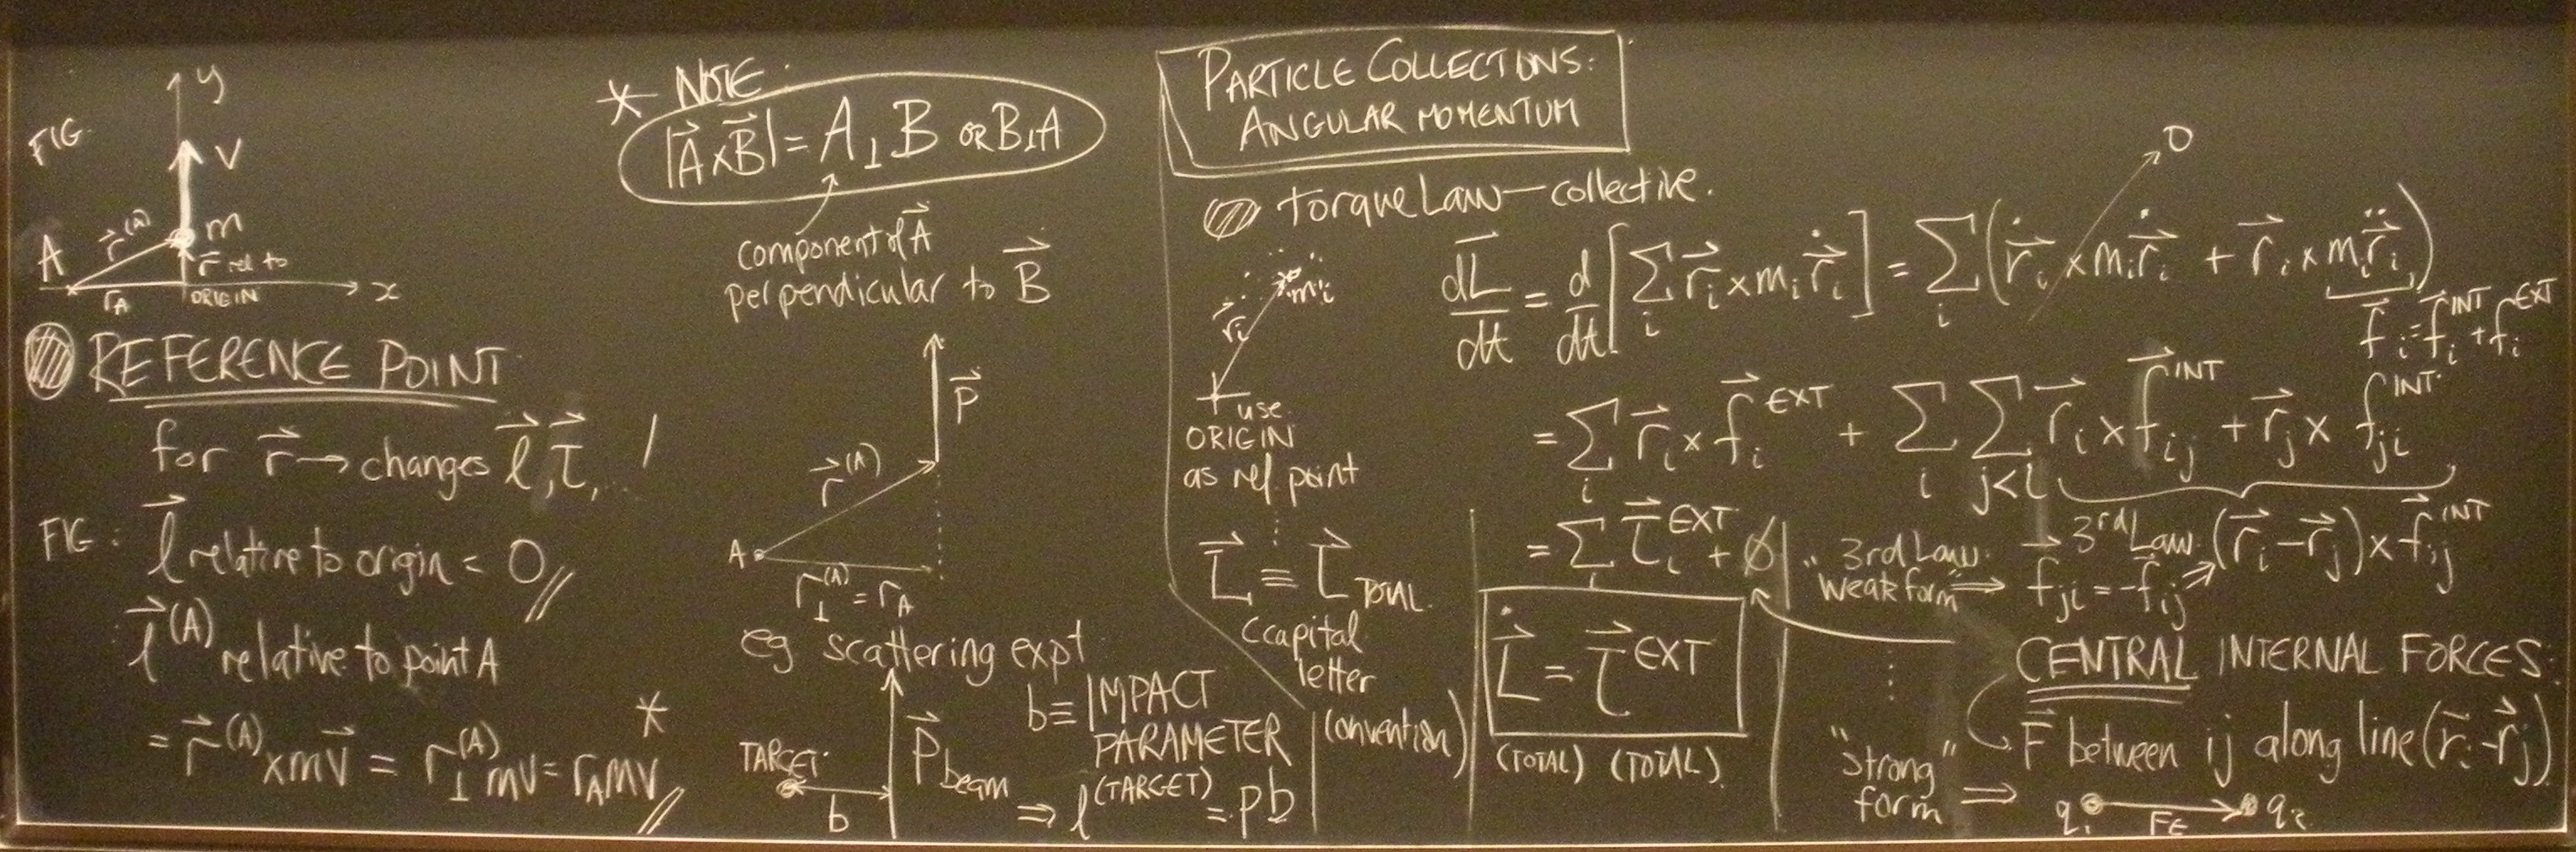 FIG.
y
v
m
A
r⃗^(A)
r⃗ rel to
ORIGIN
r_A
x
REFERENCE POINT
for r⃗ → changes l⃗, τ⃗, ...
FIG: l⃗ relative to origin = 0 //
l⃗^(A) relative to point A
= r⃗^(A) × mv⃗ = r_⊥^(A) mv = r_A mv // *
* NOTE:
|A⃗×B⃗| = A_⊥B OR B_⊥A
component of A⃗
perpendicular to B⃗
p⃗
r⃗^(A)
A
r_⊥^(A) = r_A
eg scattering expt
TARGET
b
p⃗_beam
b ≡ IMPACT
PARAMETER
⇒ l^(TARGET) = pb
PARTICLE COLLECTIONS:
ANGULAR MOMENTUM
torque Law — collective.
m_i
r⃗_i
use
ORIGIN
as ref. point
L⃗ ≡ L⃗_TOTAL
capital
letter
(convention)
dL⃗/dt = d/dt [Σ_i r⃗_i × m_i ṙ⃗_i] = Σ_i (ṙ⃗_i × m_i ṙ⃗_i + r⃗_i × m_i r̈⃗_i)
0
f⃗_i = f⃗_i^INT + f_i^EXT
= Σ_i r⃗_i × f⃗_i^EXT + Σ_i Σ_j<i r⃗_i × f⃗_ij^INT + r⃗_j × f_ji^INT
= Σ_i τ⃗_i^EXT + 0
"3rd Law
weak form" ⇒ 3rd Law f⃗_ji = -f⃗_ij ⇒ (r⃗_i - r⃗_j) × f⃗_ij^INT
L̇⃗ = τ⃗^EXT
(TOTAL) (TOTAL)
CENTRAL INTERNAL FORCES:
F⃗ between ij along line (r⃗_i - r⃗_j)
"strong"
form ⇒
q_1 F_E q_2